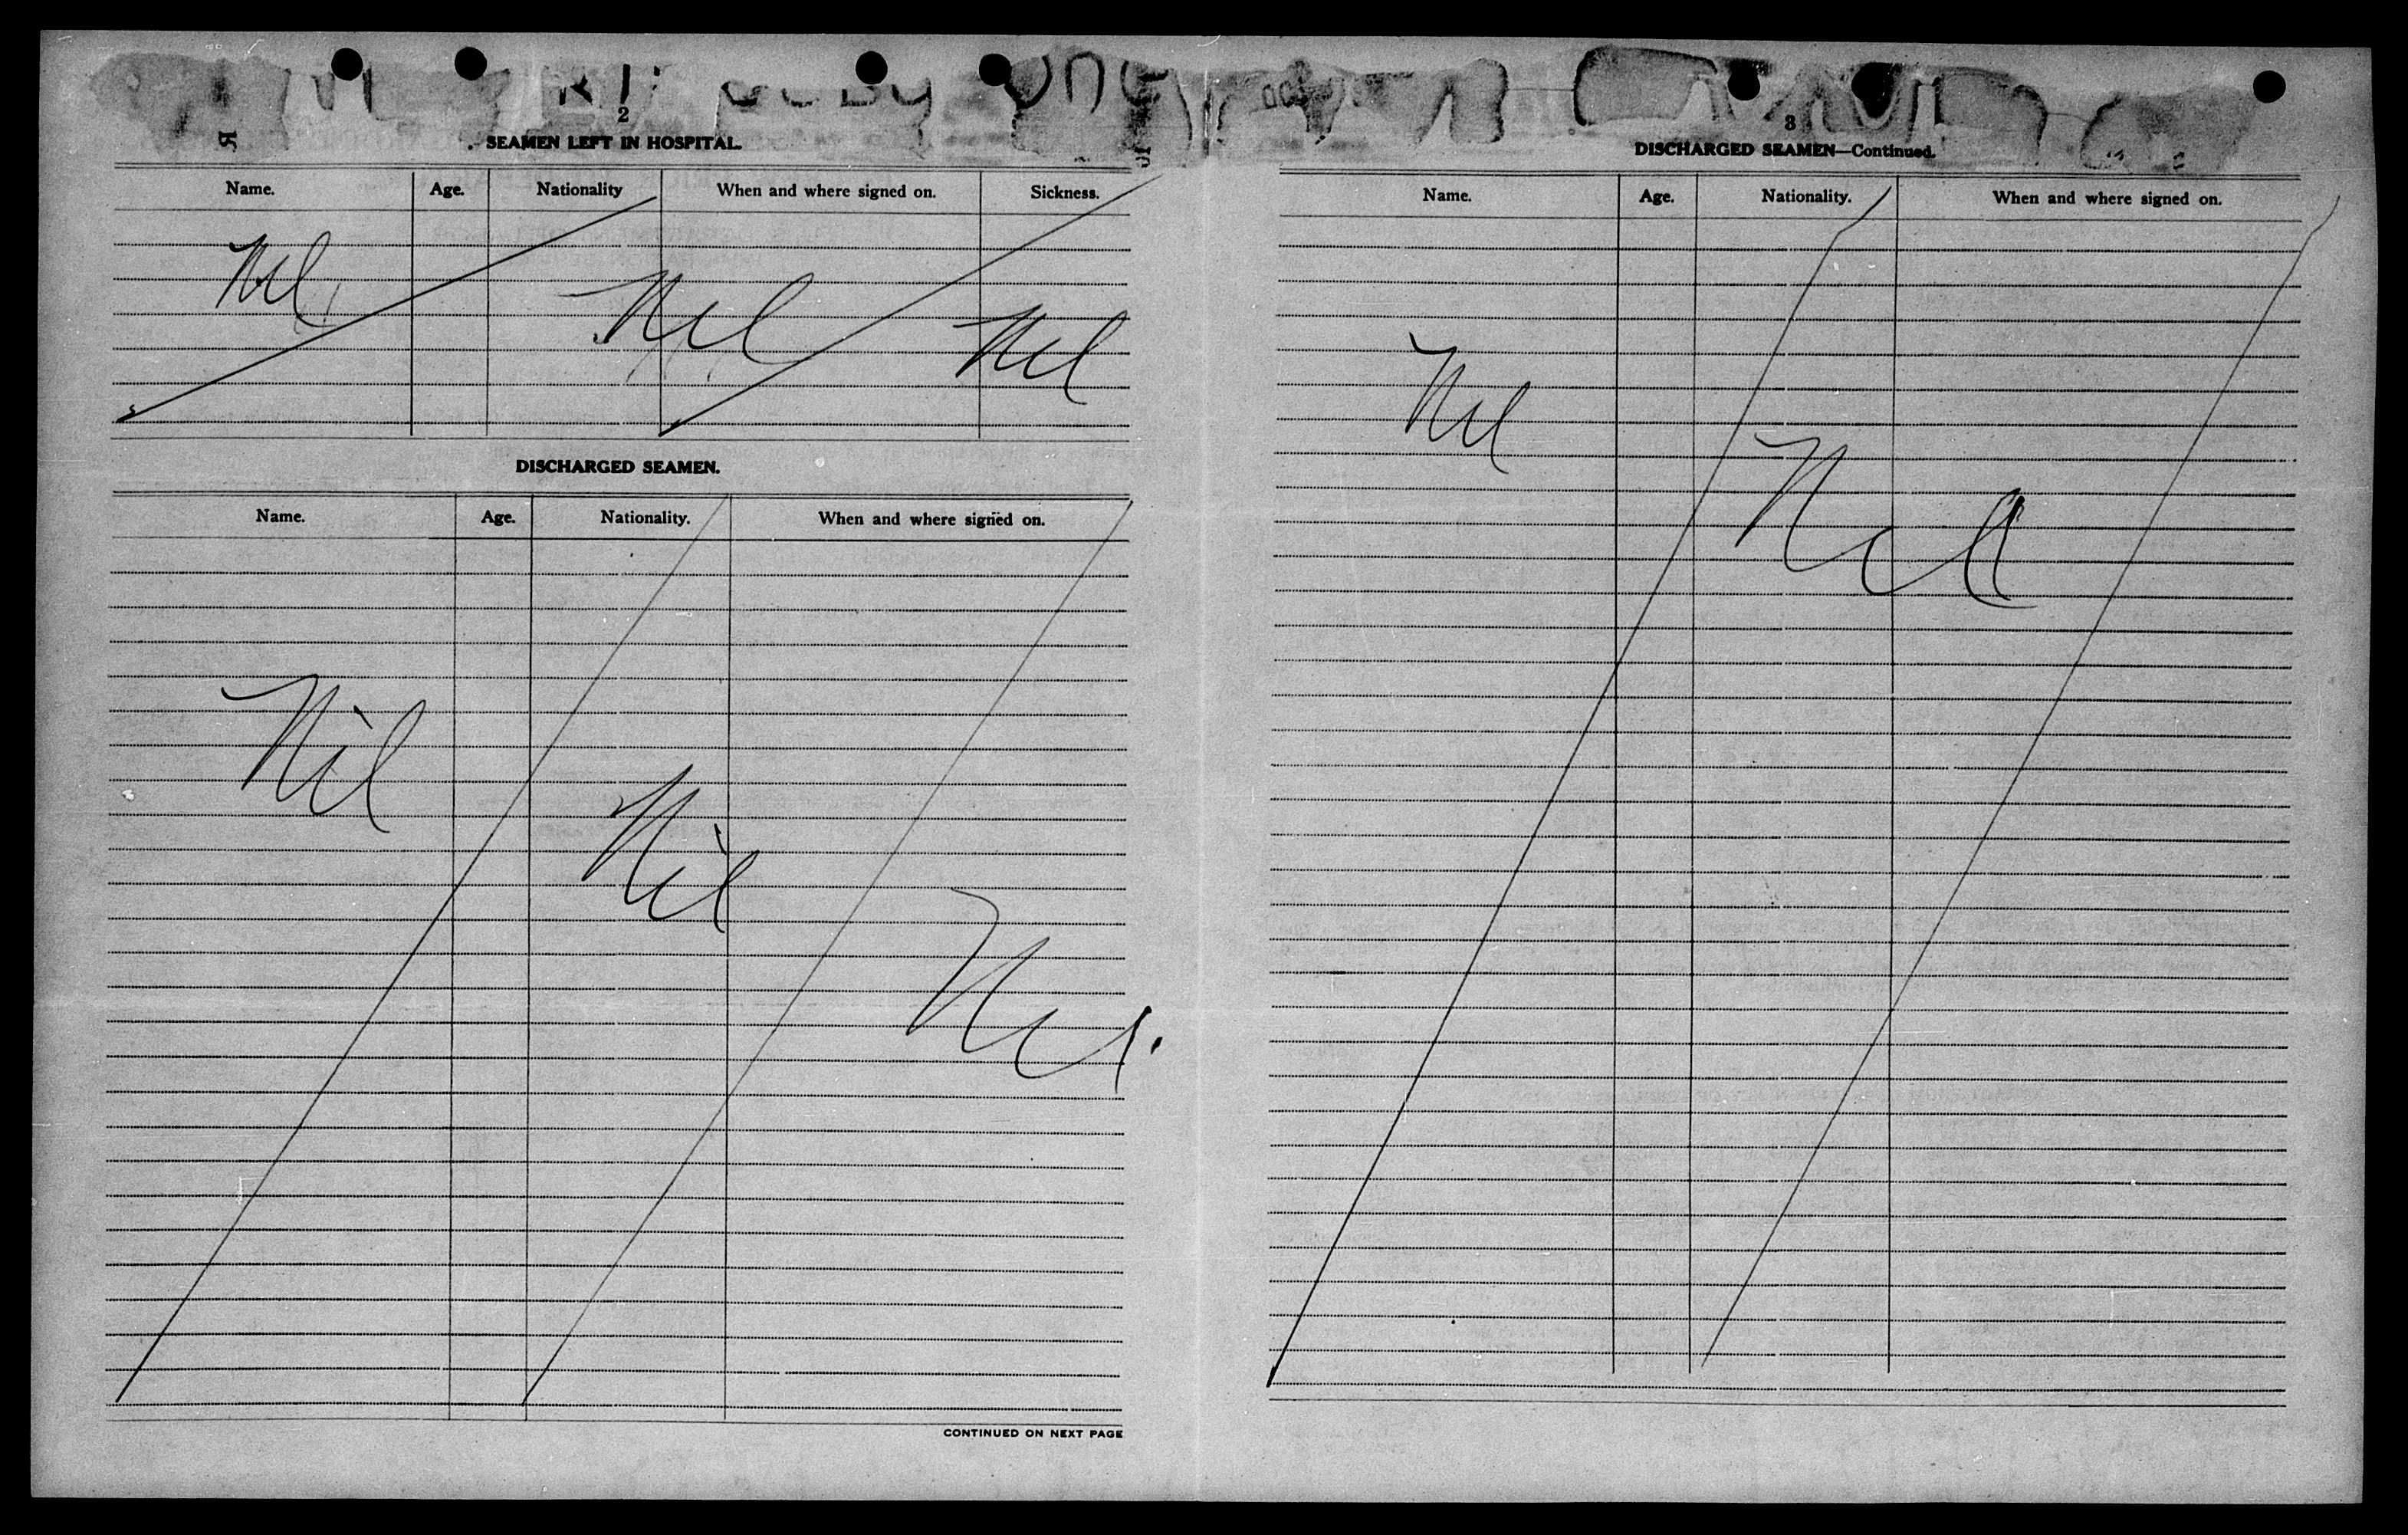 2
SEAMEN LEFT IN HOSPITAL.
Name. Age. Nationality When and where signed on. Sickness.
Nil
Nil
Nil
DISCHARGED SEAMEN.
Name. Age. Nationality. When and where signed on.
Nil
Nil
Nil
CONTINUED ON NEXT PAGE
3
DISCHARGED SEAMEN—Continued.
Name. Age. Nationality. When and where signed on.
Nil
Nil